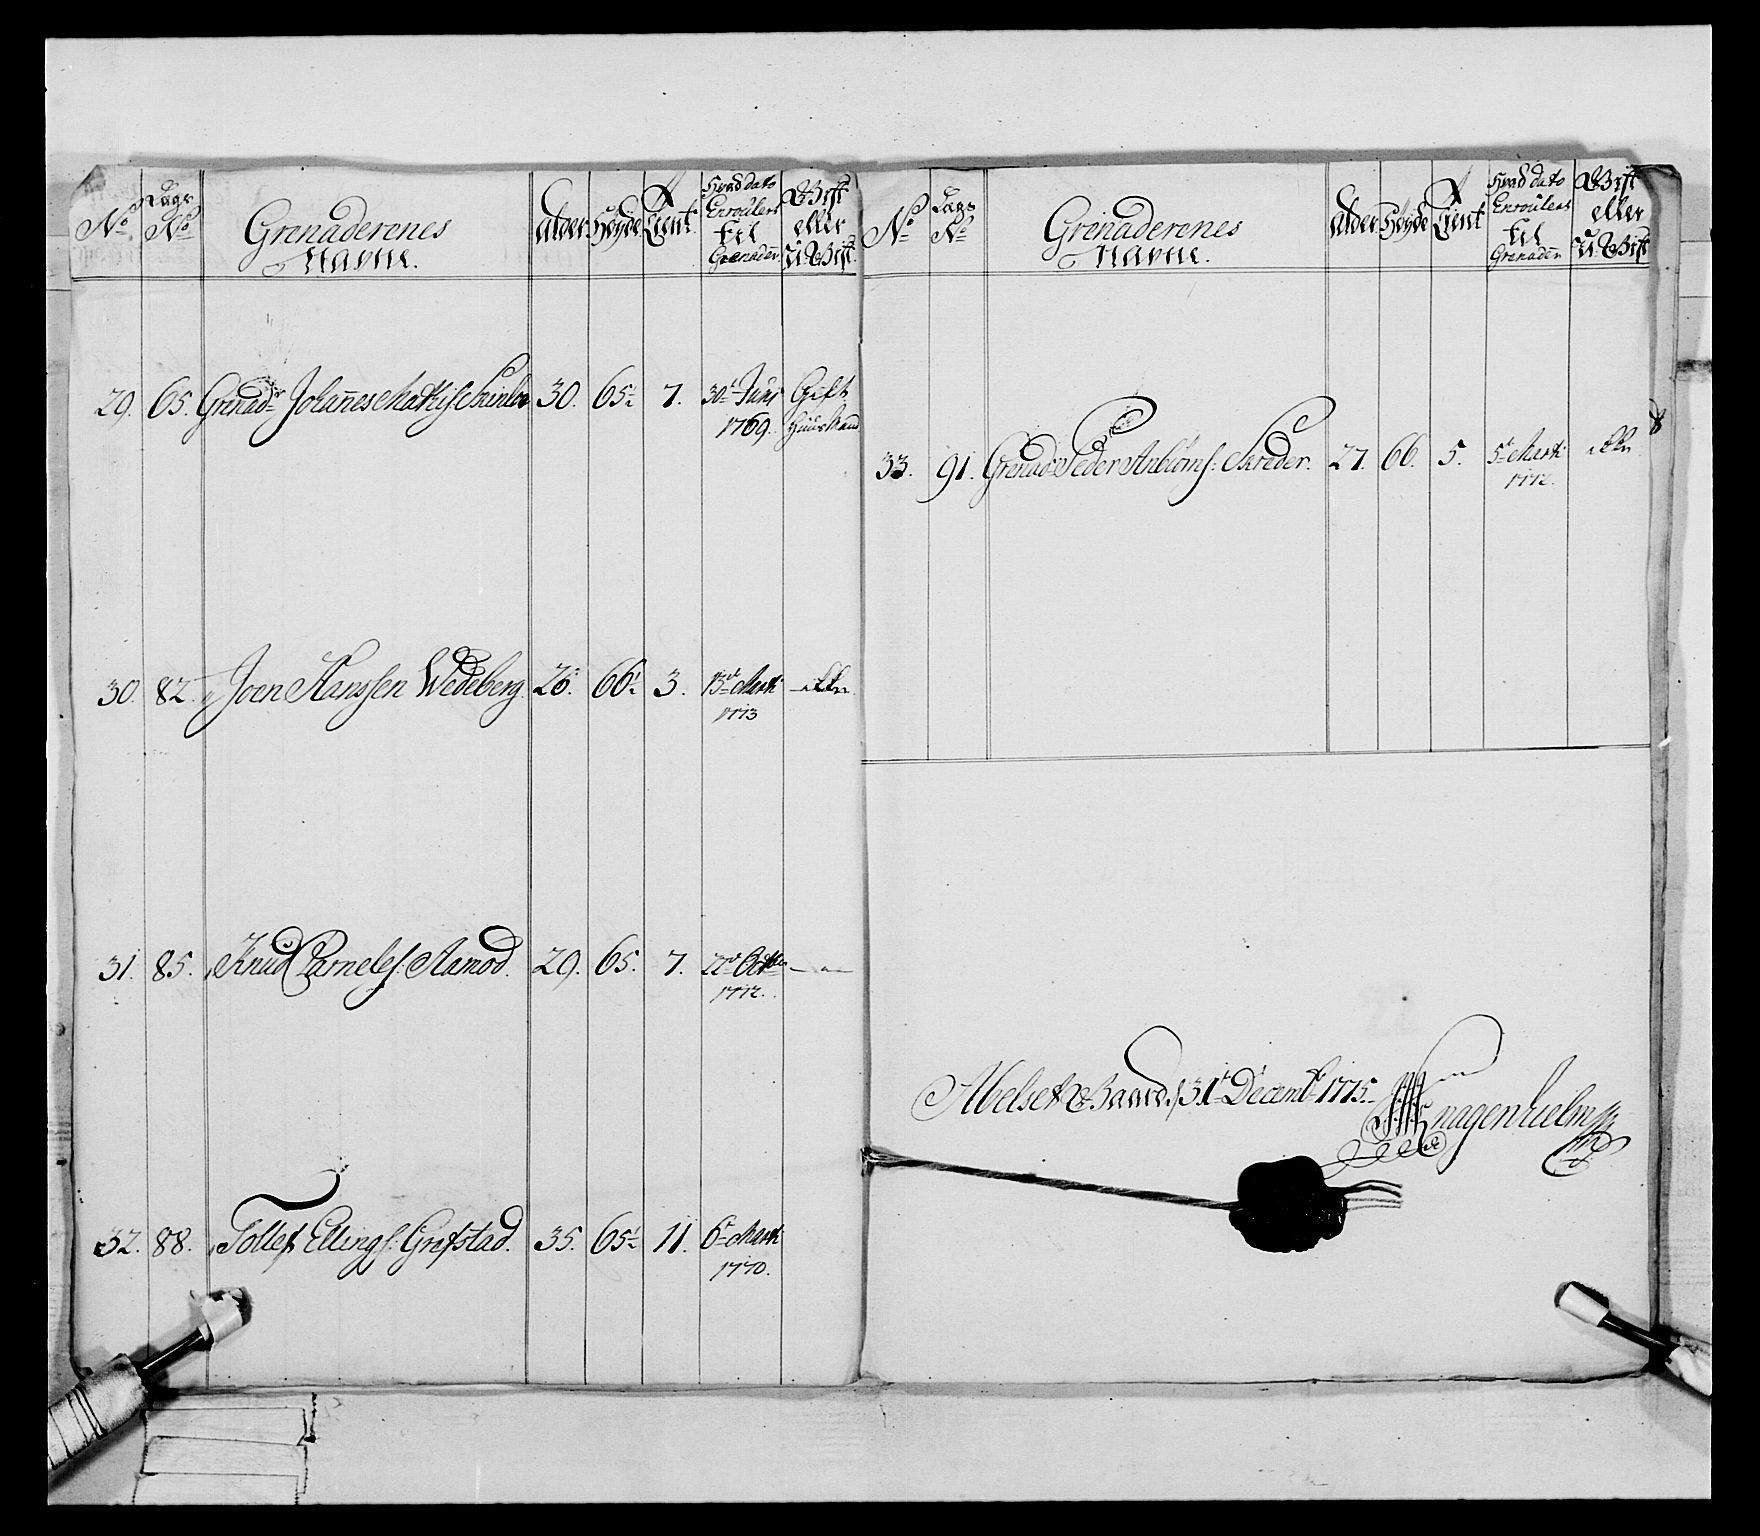 No Lægs No Grenaderenes Navne. Alder Høyde Tient Hvad dato Enroulert til Grenadeer Gift eller U-Gift
29. 65. Grenadr Johannes Mathis 30. 65½ 7. 30te Juni Gift
1769.
30. 82. Joen Hanssen Wedeberg. 26. 66½ 3. 15de Marti
1773
31. 85. Knud Carnelss: Aamod. 29. 65. 7. 22de
1772.
32. 88. Tollef Ellings: Grefstad. 35. 65½ 11. 6te Marti
1770.
No Lægs No Grenaderenes Navne. Alder Høyde Tient Hvad dato Enroulert til Grenadeer Gift eller U-Gift
33. 91. Grenadr Peder Skreder. 27. 66. 5. 5te Marti
1772.
Abelset Gaard d 31te Decembr 1775.
Knagenhielm